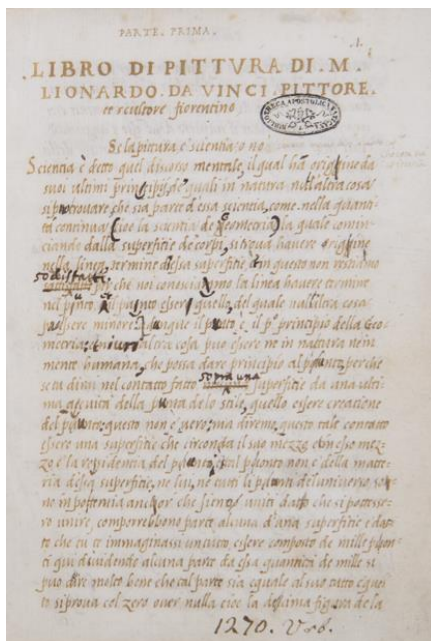 PARTE. PRIMA.
1.
.LIBRO DI PITTVRA DI. M.
LIONARDO. DA VINCI. PITTORE.
et scultore fiorentino
Se la pittura è scientia o no.
Scientia è detto quel discorso mentale, il qual hà origine da
suoi ultimi principij, de quali in natura null'altra cosa
si po trouare che sia parte d'essa scientia, come nella quanti
tà continua, (cioè la scientia de geometria) la quale comin
ciando dalla superfitie de corpi, si troua hauere origine
nella linea, termine d'essa superfitie, et in questo non restiamo
sodisfatti
perche noi conosciamo la linea hauere termine
nel punto, et il punto essere quello, del quale null'altra cosa
pò essere minore. dunque il punto, è il p.º principio della Geo
metria, et niuna altra cosa puo essere ne in natura ne in
mente humana, che possa dare principio al punto, perche
sopra una
se tu dirai nel contatto fatto superfitie da una ulti
ma acuità della punta de lo stile, quello essere creatione
del punto, questo non è uero, ma diremo questo tale contatto
essere una superfitie che circonda il suo mezzo, et in esso mez
zo è la residentia del punto, e tal punto non è della matte
ria d'essa superfitie, ne lui, ne tutti li punti del uniuerso so
no in potentia anchor che sieno uniti dato che si potesse
ro unire, comporrebbono parte alcuna d'una superfitie e da
to che tu te immaginassi un tutto essere composto da mille pun
ti qui diuidendo alcuna parte da essa quantità de mille si
può dire molto bene che tal parte sia eguale al suo tutto e que
sto si proua col zero ouer nulla cioè la decima figura de la
1270. Urb.